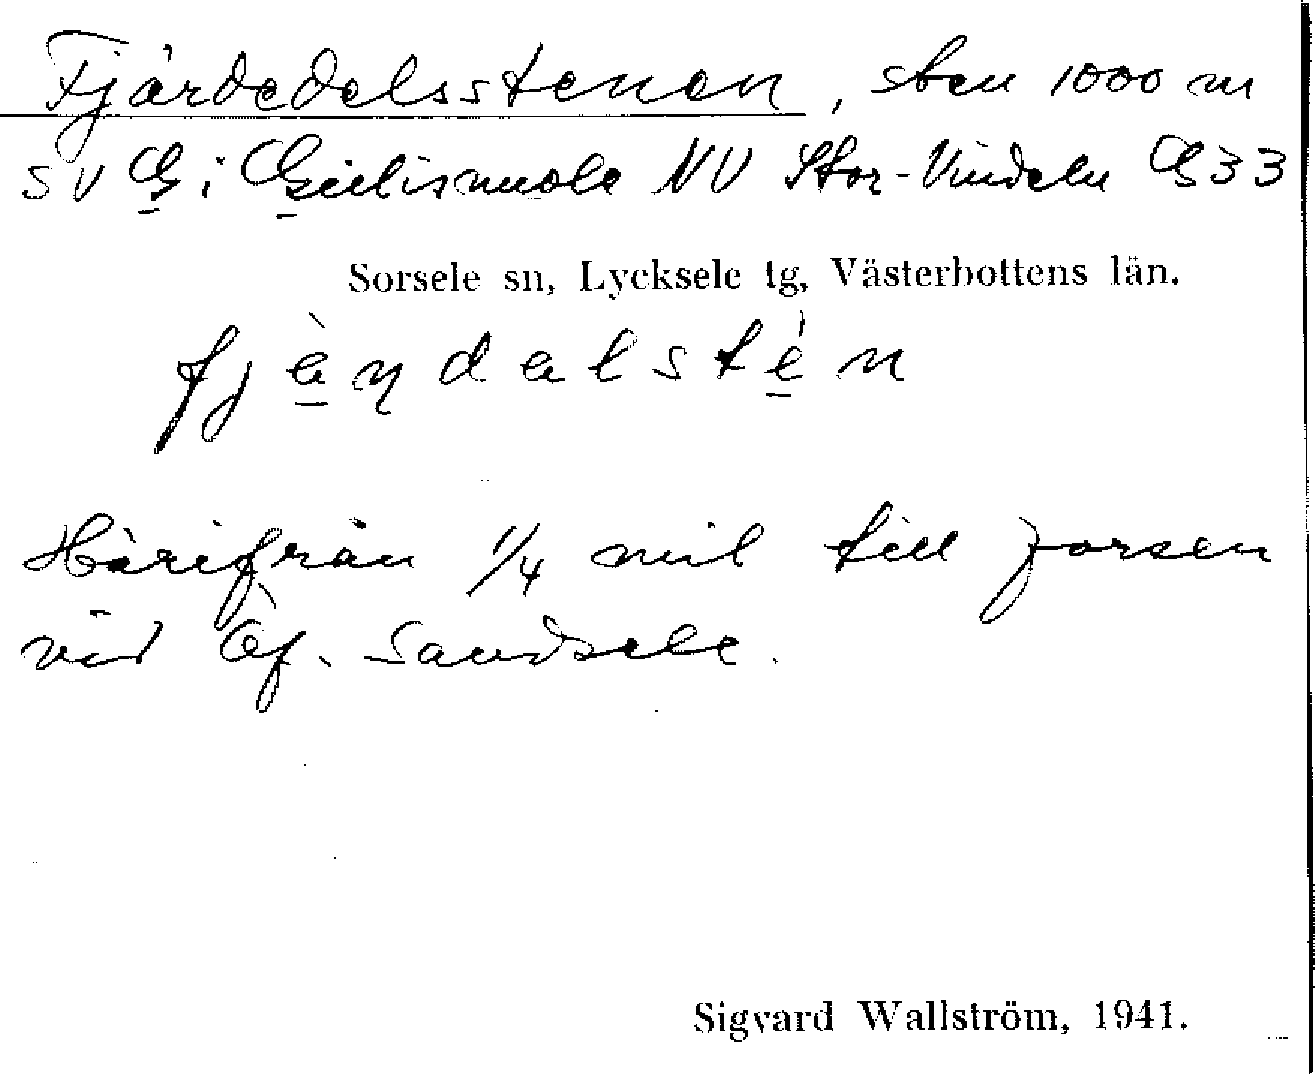 Fjärdedelsstenen, sten 1000 m
SV G i Gielismuole NV Stor-Vindeln G33
Sorsele sn, Lycksele tg, Västerbottens län.
fjæ̀ɳdalsté̱n
Härifrån 1/4 mil till forsen
vid Öf. Sandsele.
Sigvard Wallström, 1941.